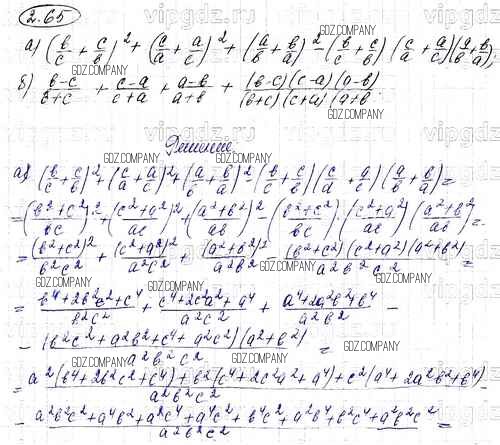 2.65
а) (b/c + c/b)² + (c/a + a/c)² + (a/b + b/a)² - (b/c + c/b) (c/a + a/c)(a/b + b/a);
б) (b-c)/(b+c) + (c-a)/(c+a) + (a-b)/(a+b) + ((b-c)(c-a)(a-b))/((b+c)(c+a)(a+b)).
Решение
а) (b/c + c/b)² + (c/a + a/c)² + (a/b + b/a)² - (b/c + c/b)(c/a + a/c)(a/b + b/a) =
= ((b²+c²)/bc)² + ((c²+a²)/ac)² + ((a²+b²)/ab)² - ((b²+c²)/bc)·((c²+a²)/ac)((a²+b²)/ab) =
= (b²+c²)²/b²c² + (c²+a²)²/a²c² + (a²+b²)²/a²b² - (b²+c²)(c²+a²)(a²+b²)/a²b²c² =
= (b⁴+2b²c²+c⁴)/b²c² + (c⁴+2c²a²+a⁴)/a²c² + (a⁴+2a²b²+b⁴)/a²b² -
- (b²c²+a²b²+c⁴+a²c²)(a²+b²)/a²b²c² =
= (a²(b⁴+2b²c²+c⁴)+b²(c⁴+2c²a²+a⁴)+c²(a⁴+2a²b²+b⁴))/a²b²c² -
- (a²b²c²+a⁴b²+a²c⁴+a⁴c²+b⁴c²+a²b⁴+b²c⁴+a²b²c²)/a²b²c² =